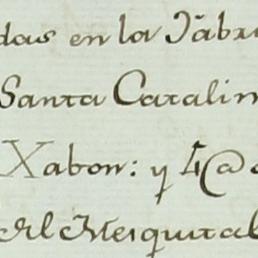 das en la Fabri
Santa Catalin
Xabon: y 4@
El Mesquital